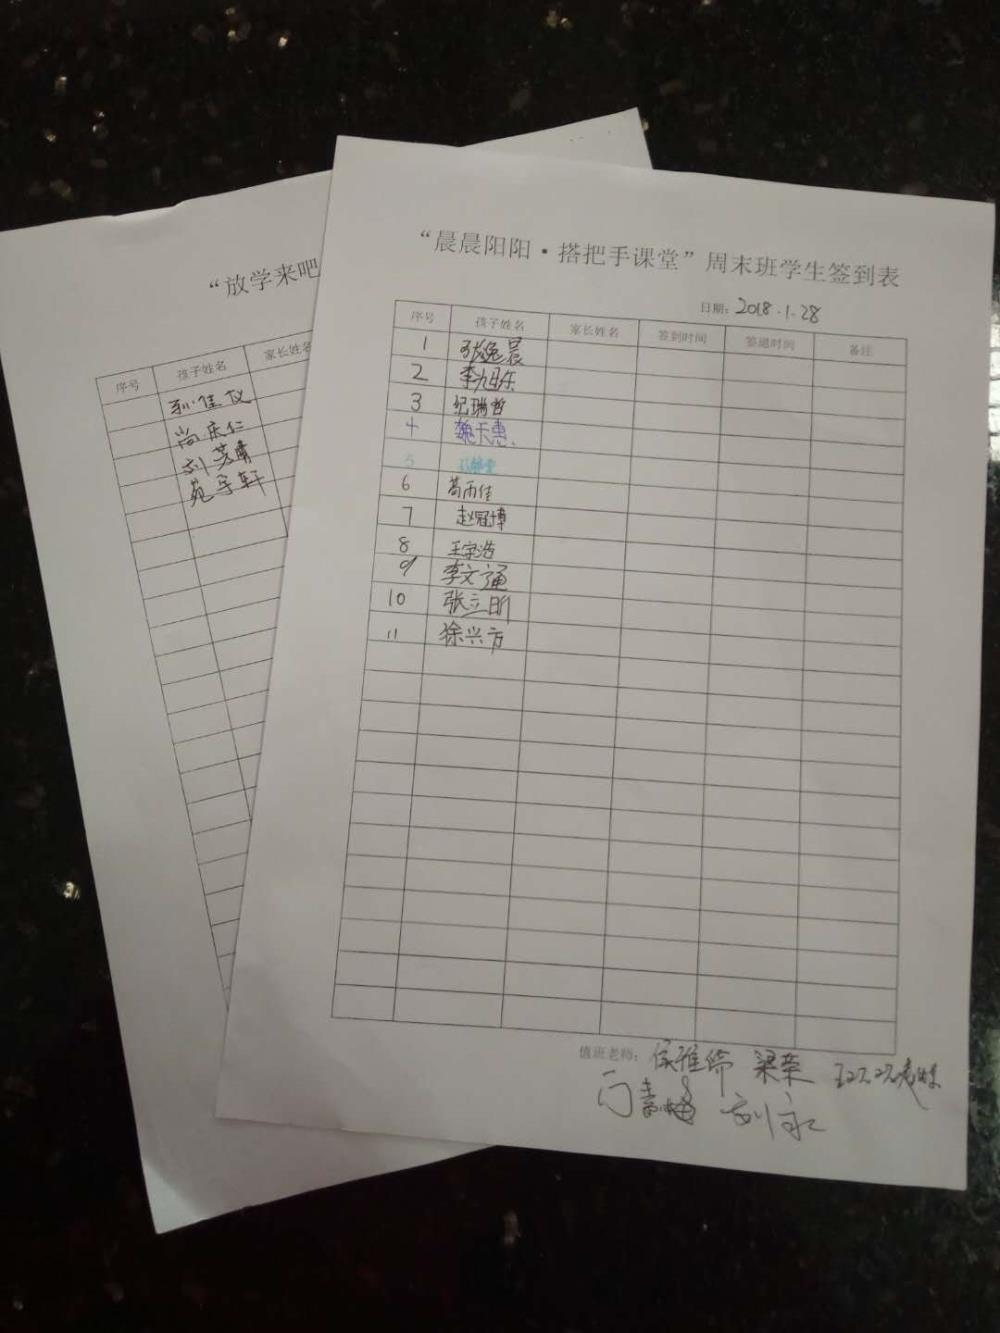 “放学来吧
序号 孩子姓名 家长姓名
孙佳仪
尚庆仁
刘芳菁
苑宇轩
“晨晨阳阳·搭把手课堂”周末班学生签到表
日期：2018.1.28
序号 孩子姓名 家长姓名 签到时间 签退时间 备注
1 张逸晨
2 李旭乐
3 纪瑞哲
4 魏天惠
5
6 葛雨佳
7 赵冠博
8 王宗浩
9 李文通
10 张立昕
11 徐兴方
值班老师： 侯雅倩 梁荣
刘永仁